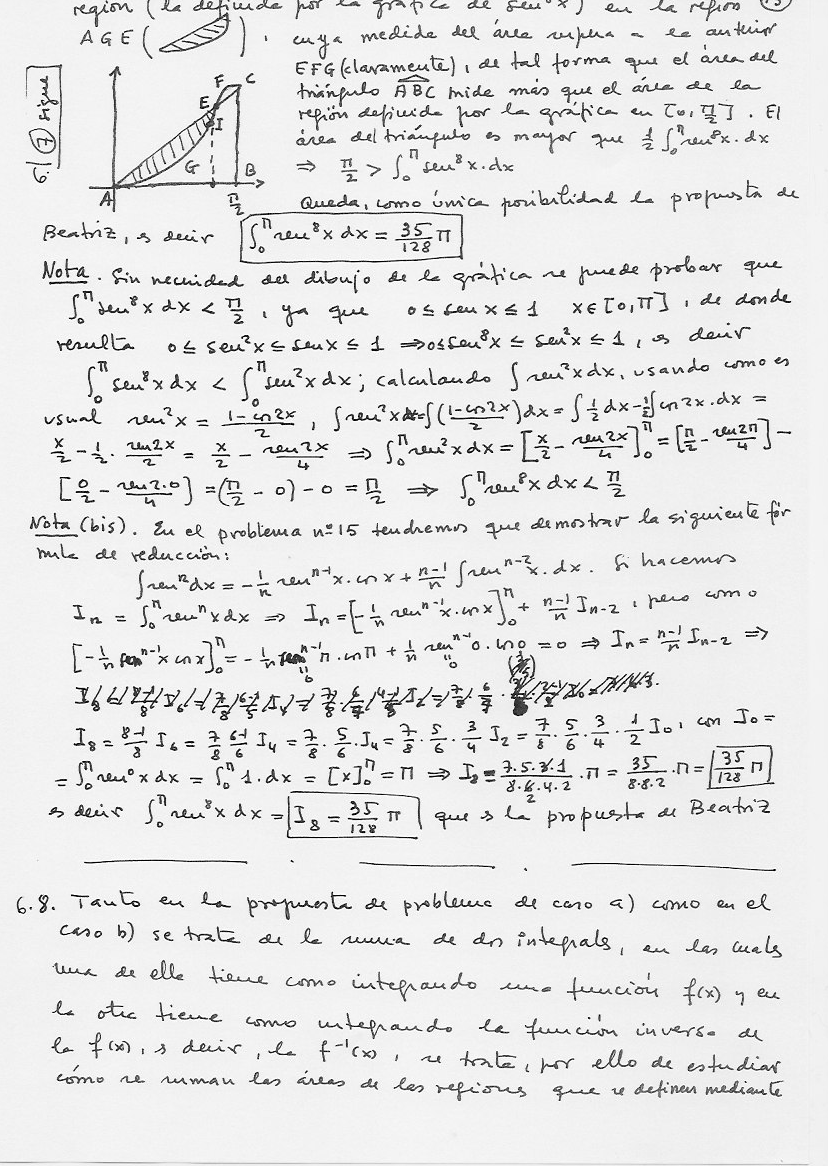 región (la definida por la gráfica de sen⁸x) en la región
AGE ( ), cuya medida del área supera a la anterior
EFG (claramente), de tal forma que el área del
triángulo ABC mide más que el área de la
región definida por la gráfica en [0, π/2]. El
área del triángulo es mayor que 1/2 ∫₀^π sen⁸x·dx
⇒ π/2 > ∫₀^π sen⁸x·dx
6.| 7 sigue
F C
E
I
G
A B
π/2
Queda, como única posibilidad la propuesta de
Beatriz, es decir ∫₀^π sen⁸x dx = 35/128 π
Nota. Sin necesidad del dibujo de la gráfica se puede probar que
∫₀^π sen⁸x dx < π/2, ya que 0 ≤ sen x ≤ 1 x∈[0,π], de donde
resulta 0 ≤ sen²x ≤ sen x ≤ 1 ⇒ 0 ≤ sen⁸x ≤ sen²x ≤ 1, es decir
∫₀^π sen⁸x dx < ∫₀^π sen²x dx; calculando ∫ sen²x dx, usando como es
usual sen²x = (1-cos2x)/2, ∫sen²x dx = ∫((1-cos2x)/2)dx = ∫1/2 dx - 1/2∫cos2x·dx =
x/2 - 1/2 · sen2x/2 = x/2 - sen2x/4 ⇒ ∫₀^π sen²x dx = [x/2 - sen2x/4]₀^π = [π/2 - sen2π/4] -
[0/2 - sen2·0/4] = (π/2 - 0) - 0 = π/2 ⇒ ∫₀^π sen⁸x dx < π/2
Nota (bis). En el problema nº 15 tendremos que demostrar la siguiente fór
mula de reducción:
∫senⁿdx = -1/n senⁿ⁻¹x·cos x + (n-1)/n ∫senⁿ⁻²x·dx. Si hacemos
Iₙ = ∫₀^π senⁿx dx ⇒ Iₙ = [-1/n senⁿ⁻¹x·cosx]₀^π + (n-1)/n Iₙ₋₂, pero como
[-1/n senⁿ⁻¹x cosx]₀^π = -1/n senⁿ⁻¹π·cosπ + 1/n senⁿ⁻¹0·cos0 = 0 ⇒ Iₙ = (n-1)/n Iₙ₋₂ ⇒
I₈ = (8-1)/8 I₆ = 7/8 (6-1)/6 I₄ = 7/8 · 5/6 · I₄ = 7/8 · 5/6 · 3/4 I₂ = 7/8 · 5/6 · 3/4 · 1/2 I₀, con I₀ =
= ∫₀^π sen⁰x dx = ∫₀^π 1·dx = [x]₀^π = π ⇒ I₈ = (7·5·3·1)/(8·6·4·2) · π = 35/(8·8·2) · π = 35/128 π
es decir ∫₀^π sen⁸x dx = I₈ = 35/128 π que es la propuesta de Beatriz
6.8. Tanto en la propuesta de problema de caso a) como en el
caso b) se trata de la suma de dos integrals, en las cuales
una de ella tiene como integrando una función f(x) y en
la otra tiene como integrando la función inversa de
la f(x), es decir, la f⁻¹(x), se trata, por ello de estudiar
cómo se suman las áreas de las regiones que se definen mediante